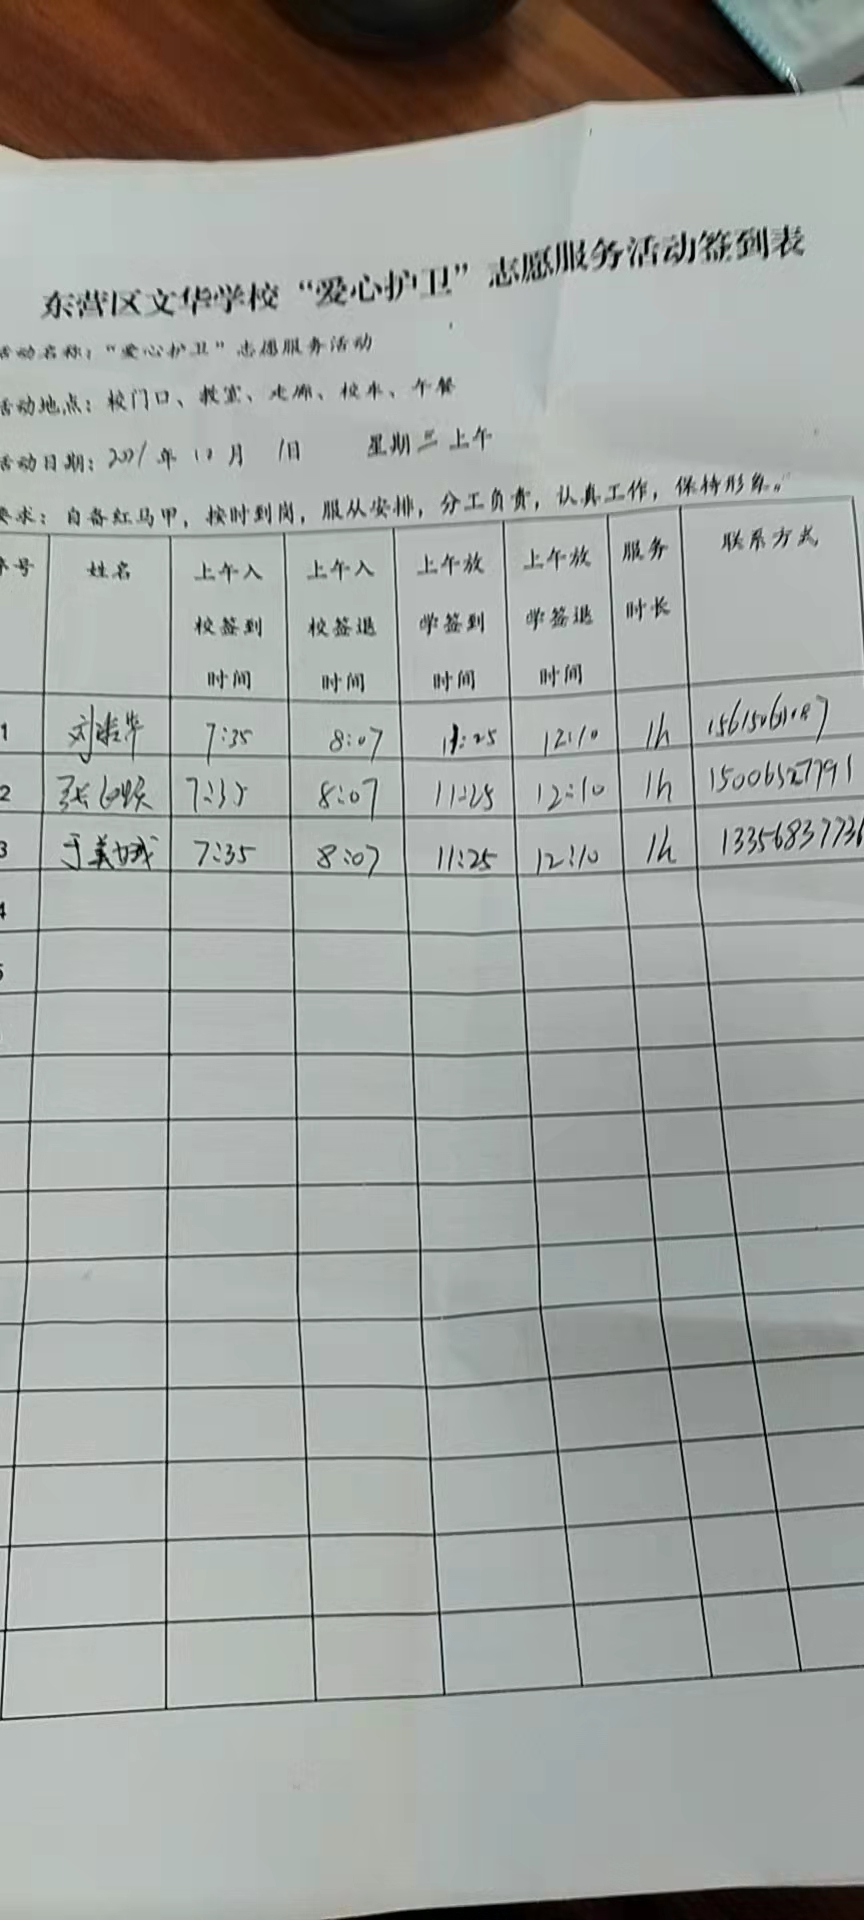 东营区文华学校“爱心护卫”志愿服务活动签到表
活动名称：“爱心护卫”志愿服务活动
活动地点：校门口、教室、走廊、校车、午餐
活动日期：2021年12月1日 星期三上午
要求：自备红马甲，按时到岗，服从安排，分工负责，认真工作，保持形象。
序号 姓名 上午入校签到时间 上午入校签退时间 上午放学签到时间 上午放学签退时间 服务时长 联系方式
1 7:35 8:07 11:25 12:10 1h
2 7:35 8:07 11:25 12:10 1h 15006527791
3 7:35 8:07 11:25 12:10 1h 13356837736
4
5